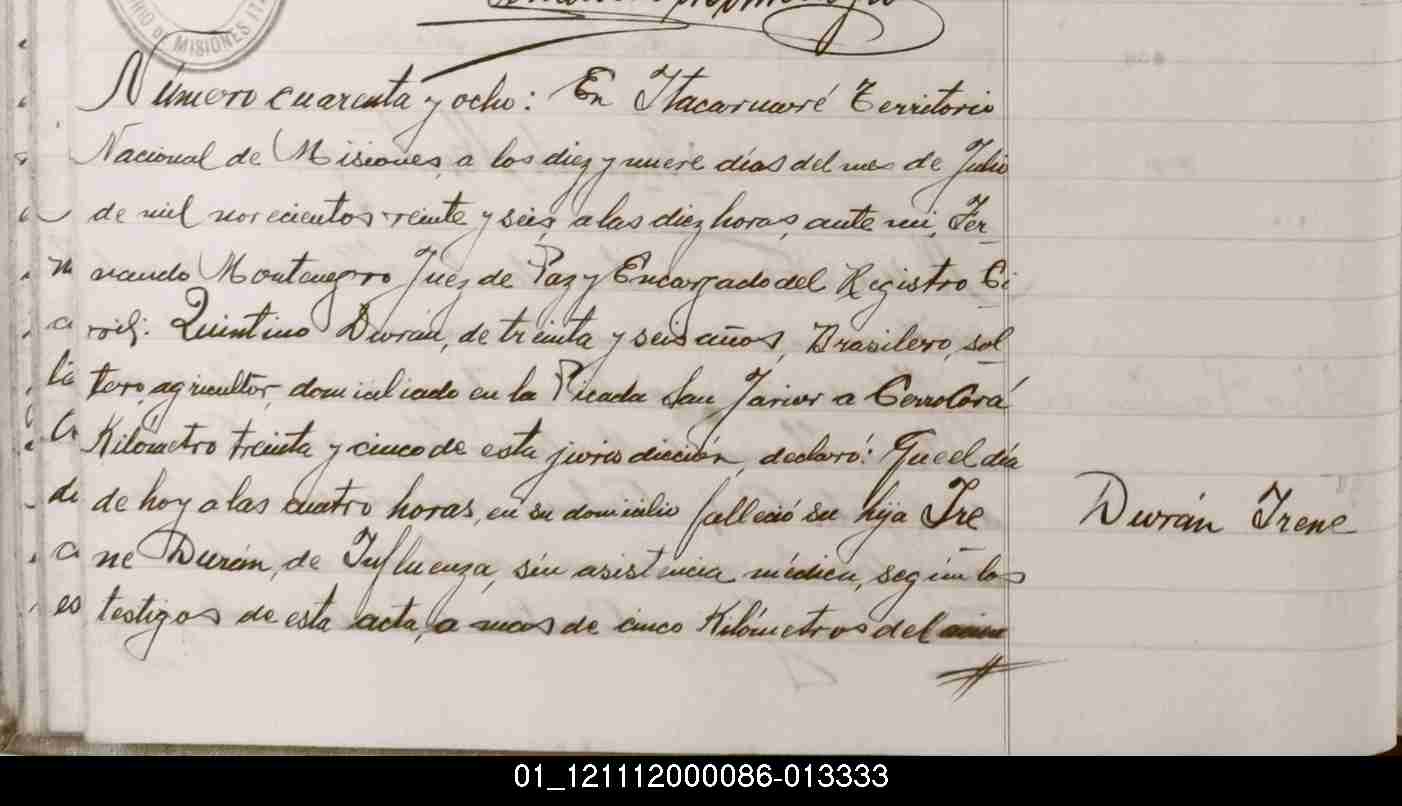 DE MISIONES
Número cuarenta y ocho: En Itacaruaré Territorio
Nacional de Misiones, a los diez y nueve días del mes de Julio
de mil novecientos veinte y seis, a las diez horas, ante mi, Fer-
nando Montenegro Juez de Paz y Encargado del Registro Ci
vil: Quintino Durán, de treinta y seis años, Brasilero, sol
tero, agricultor, domicialiado en la Picada San Javier a Cerro Corá
Kilómetro treinta y cinco de esta jurisdicción, declaró: Que el día
de hoy a las cuatro horas, en su domicilio falleció su hija Ire
Durán Irene
ne Durán, de Influenza, sin asistencia médica, según los
testigos de esta acta, a mas de cinco Kilómetros del
01_121112000086-013333